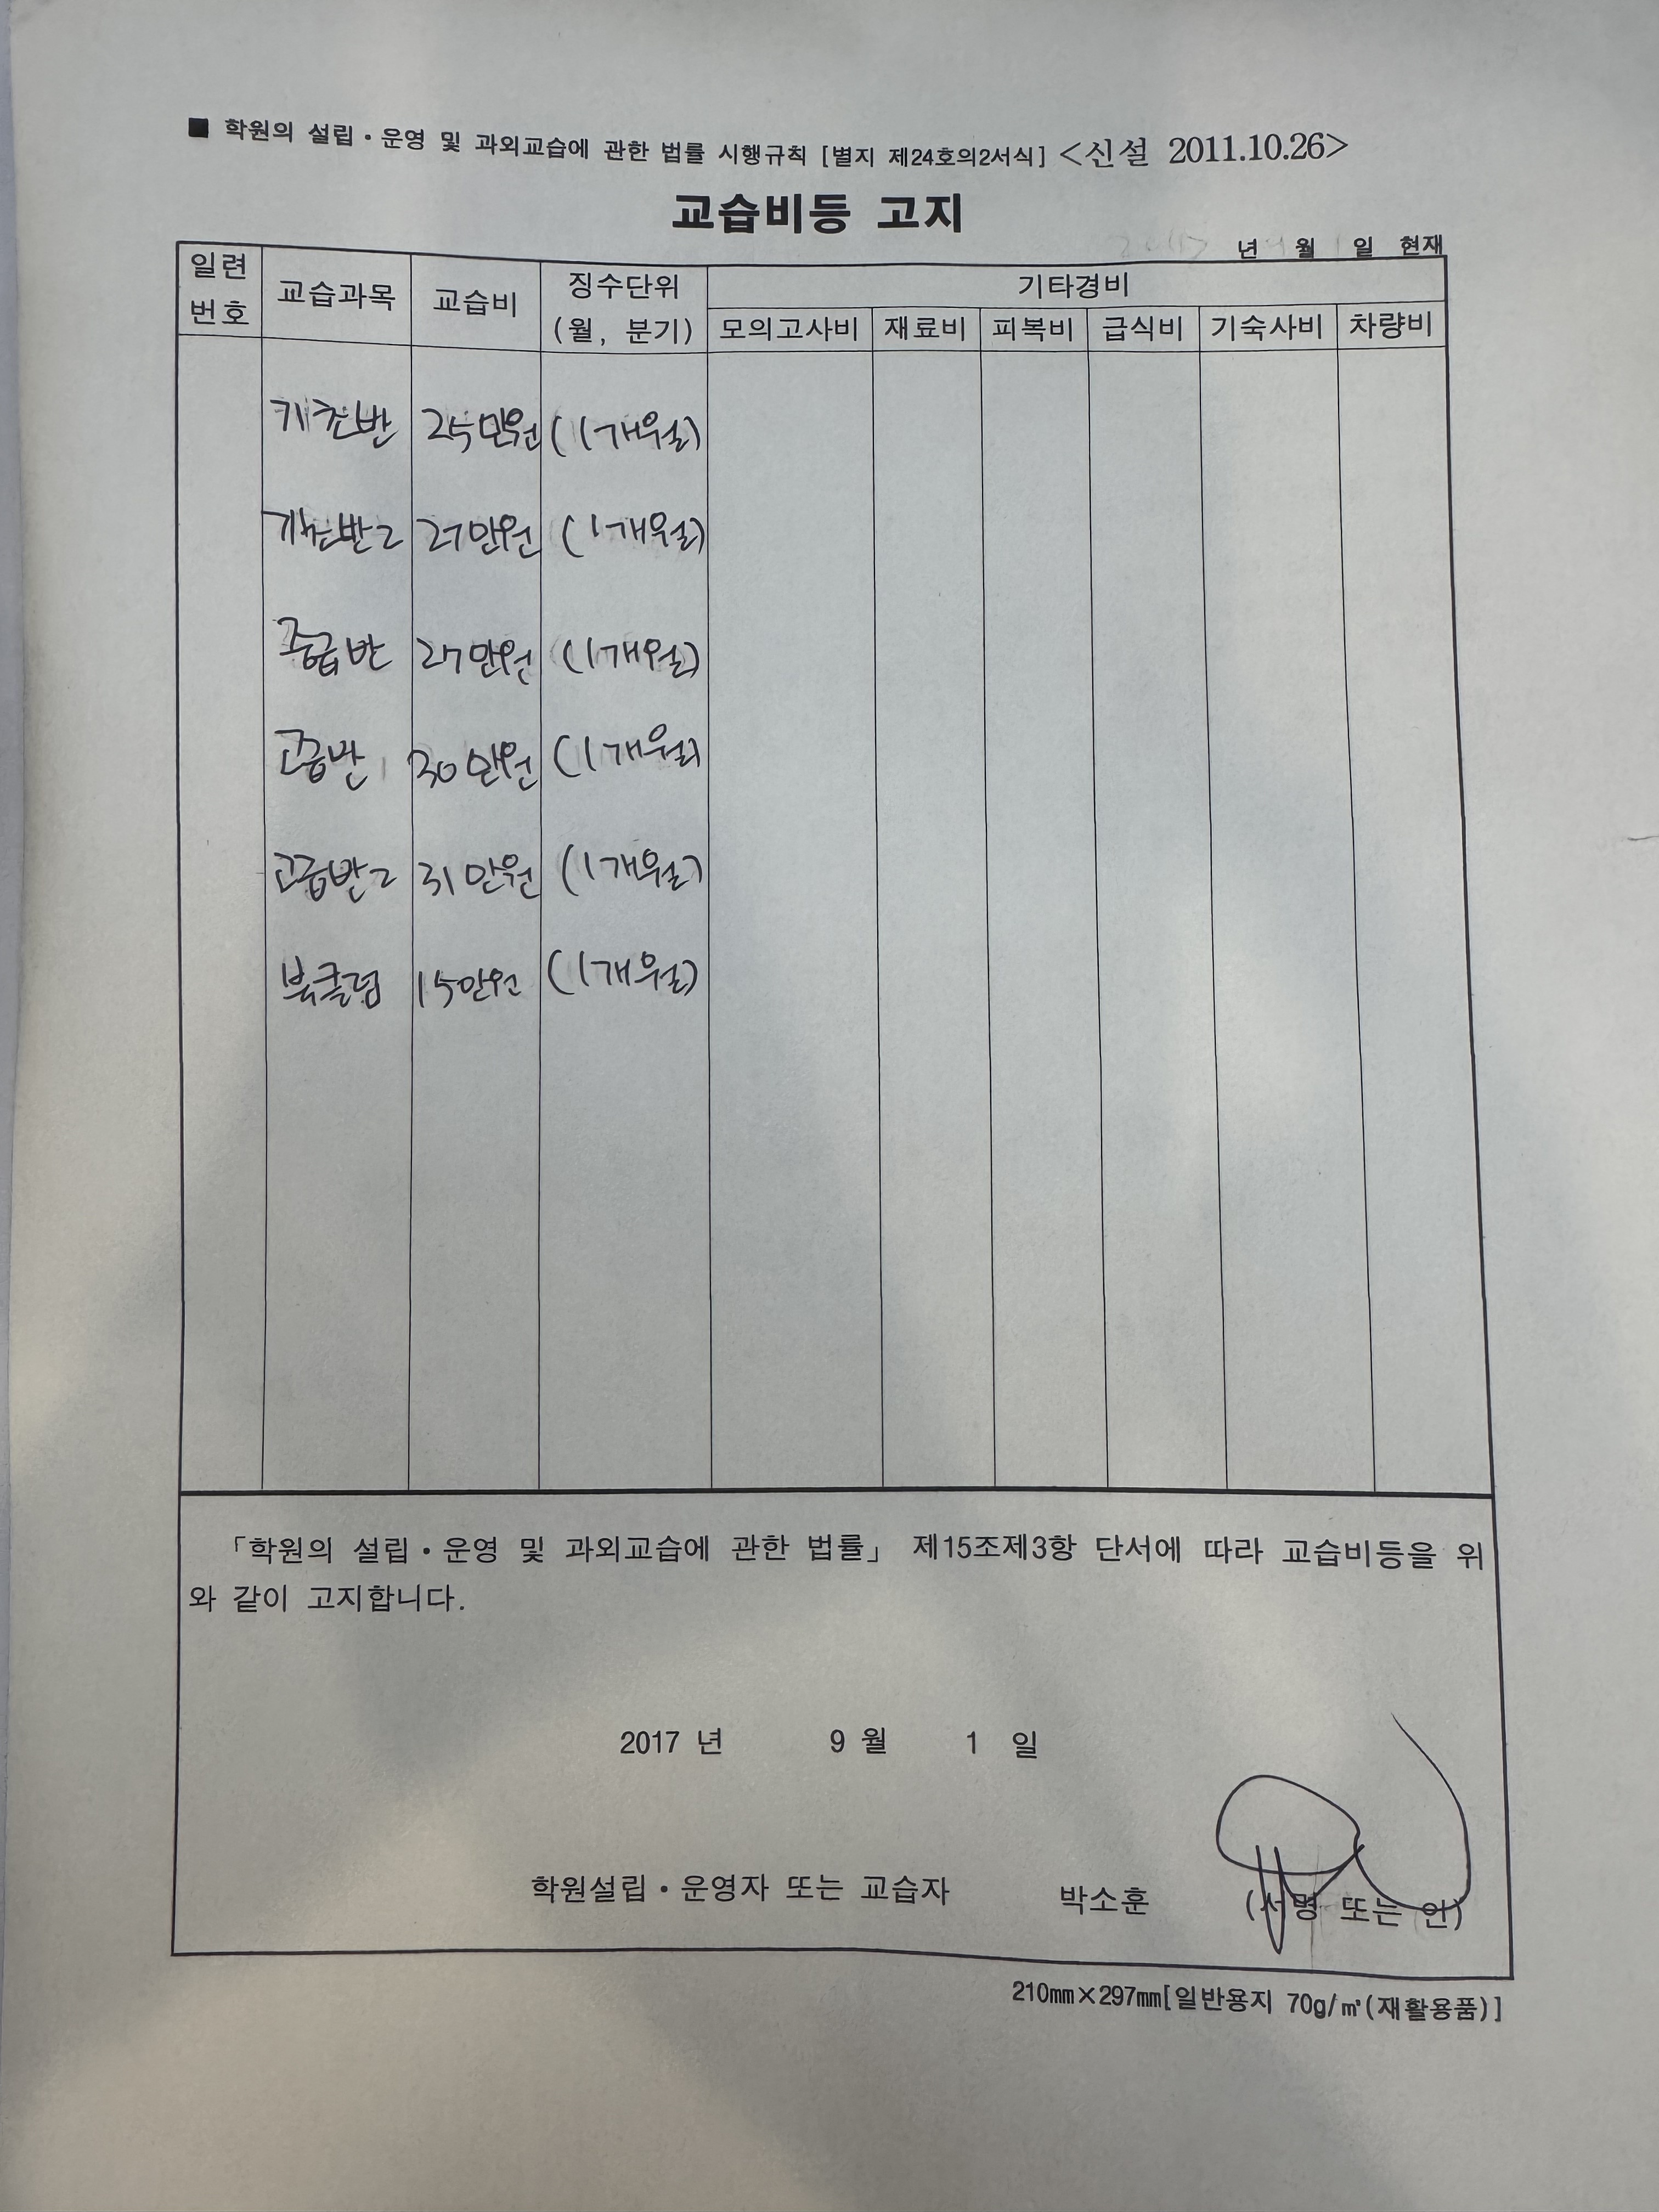 ■ 학원의 설립·운영 및 과외교습에 관한 법률 시행규칙 [별지 제24호의2서식] <신설 2011.10.26>
교습비등 고지
년 월 일 현재
일련번호 교습과목 교습비 징수단위(월, 분기) 기타경비
모의고사비 재료비 피복비 급식비 기숙사비 차량비
기초반 25만원 (1개월)
기초반2 27만원 (1개월)
중급반 27만원 (1개월)
고급반 30만원 (1개월)
고급반2 31만원 (1개월)
북클럽 15만원 (1개월)
「학원의 설립·운영 및 과외교습에 관한 법률」 제15조제3항 단서에 따라 교습비등을 위
와 같이 고지합니다.
2017 년 9 월 1 일
학원설립·운영자 또는 교습자 박소훈 (서명 또는 인)
210㎜×297㎜[일반용지 70g/㎡(재활용품)]